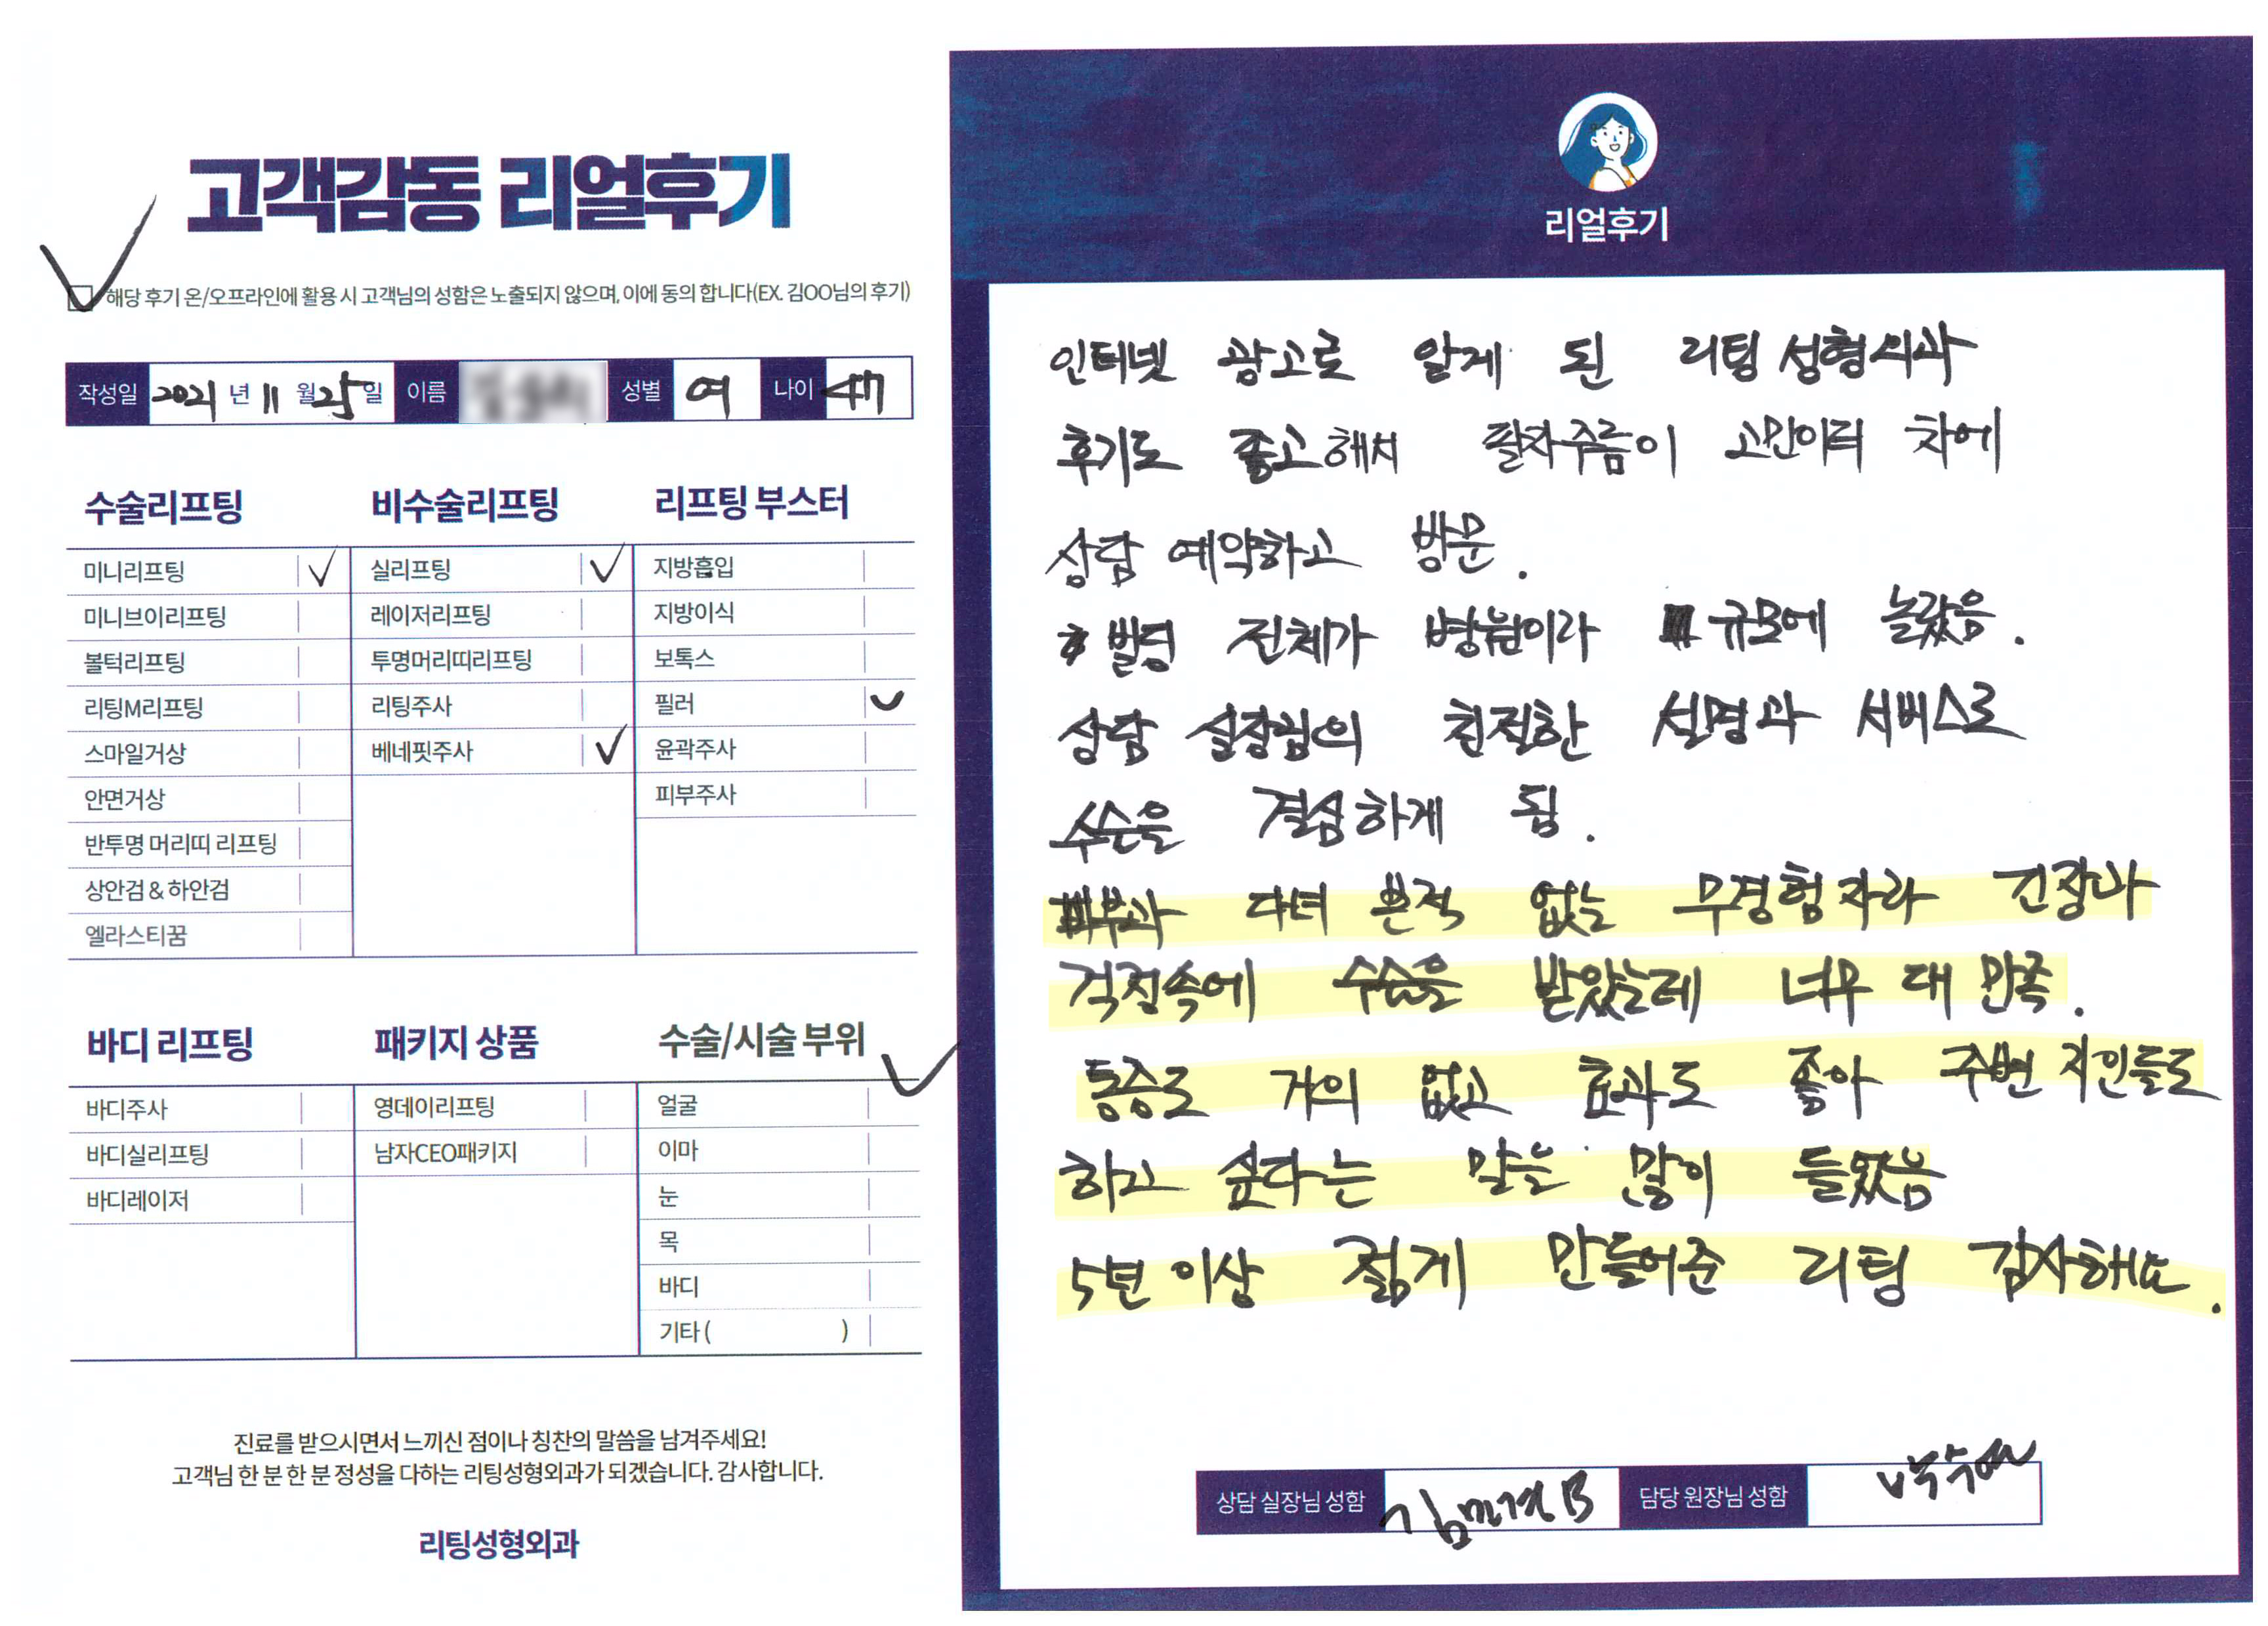 고객감동 리얼후기
해당 후기 온/오프라인에 활용 시 고객님의 성함은 노출되지 않으며, 이에 동의 합니다(EX. 김OO님의 후기)
작성일 2021 년 11 월 25 일 이름 성별 여 나이 47
수술리프팅
미니리프팅
미니브이리프팅
볼턱리프팅
리팅M리프팅
스마일거상
안면거상
반투명 머리띠 리프팅
상안검 & 하안검
엘라스티꿈
비수술리프팅
실리프팅
레이저리프팅
투명머리띠리프팅
리팅주사
베네핏주사
리프팅 부스터
지방흡입
지방이식
보톡스
필러
윤곽주사
피부주사
바디 리프팅
바디주사
바디실리프팅
바디레이저
패키지 상품
영데이리프팅
남자CEO패키지
수술/시술 부위
얼굴
이마
눈
목
바디
기타 ( )
진료를 받으시면서 느끼신 점이나 칭찬의 말씀을 남겨주세요!
고객님 한 분 한 분 정성을 다하는 리팅성형외과가 되겠습니다. 감사합니다.
리팅성형외과
리얼후기
인터넷 광고로 알게 된 리팅 성형외과
후기도 좋고해서 팔자주름이 고민이던 차에
상담 예약하고 방문.
빌딩 전체가 병원이라 규모에 놀랐음.
상담 실장님의 친절한 설명과 서비스로
수술을 결심하게 됨.
피부과 다녀 본적 없는 무경험자라 긴장과
걱정속에 수술을 받았는데 너무 대 만족.
통증도 거의 없고 효과도 좋아 주변 지인들도
하고 싶다는 말을 많이 들었음
5년 이상 젊게 만들어준 리팅 감사해요.
상담 실장님 성함 김민경 B 담당 원장님 성함